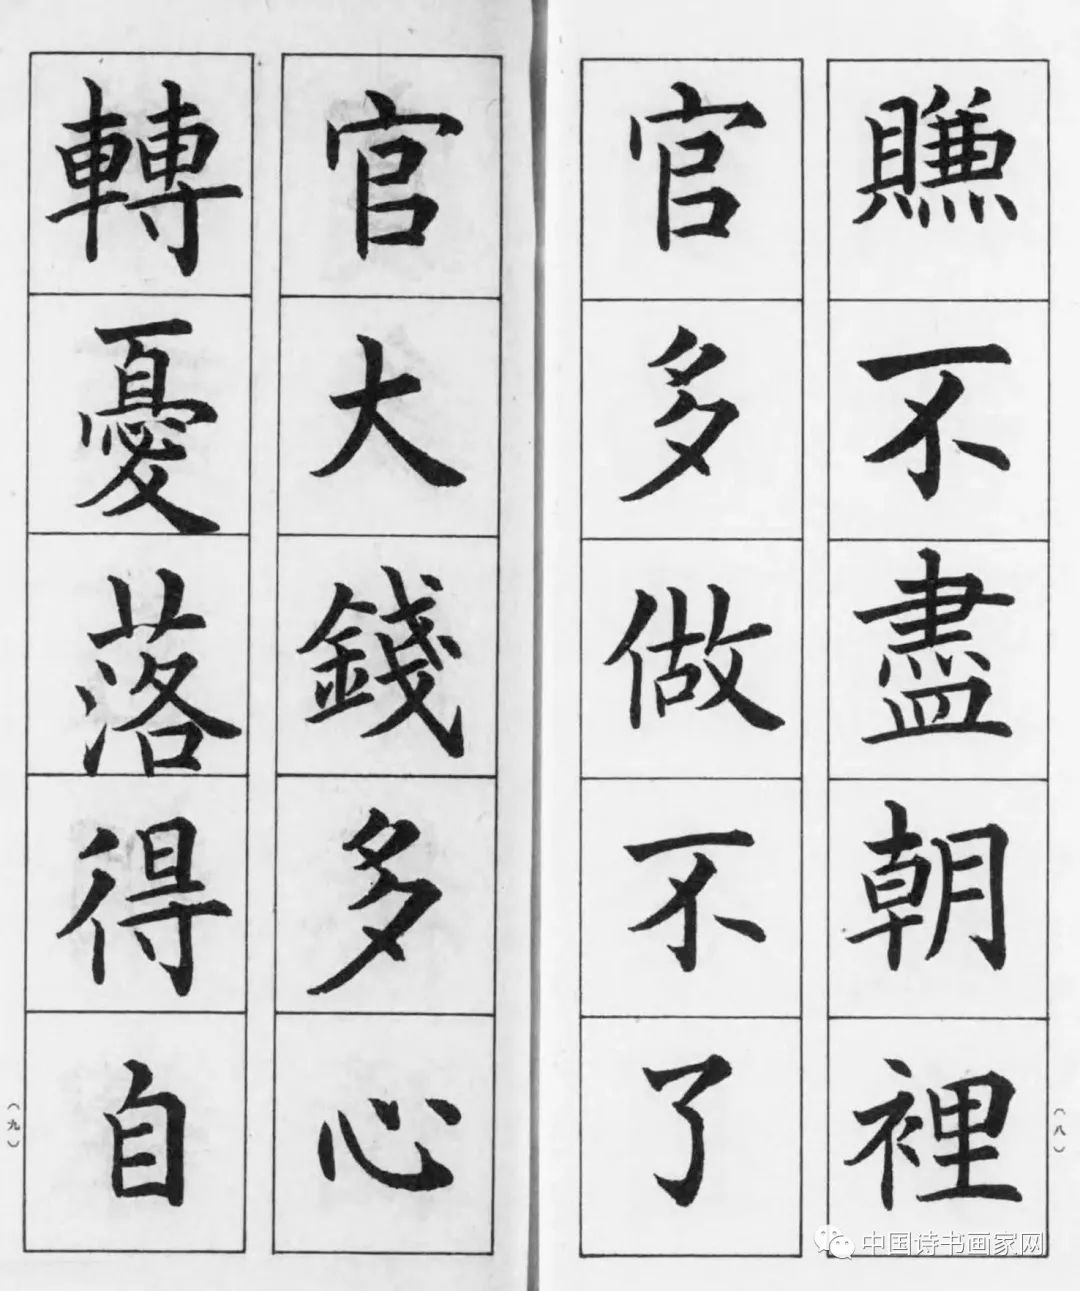 賺不盡朝裡
官多做不了
官大錢多心
轉憂落得自
（八）
（九）
中国诗书画家网